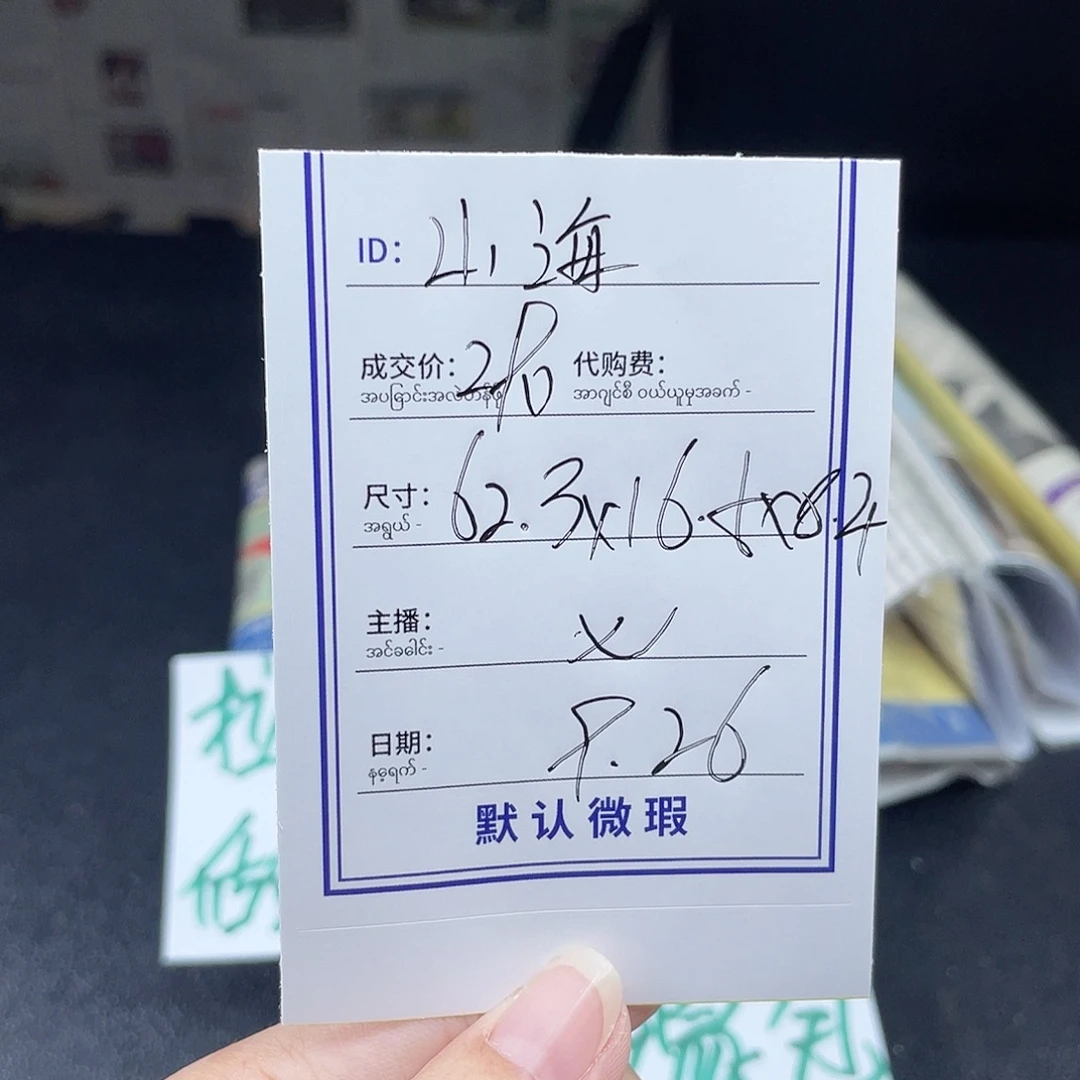 ID: 山海
成交价: 代购费:
အပြောင်းအလဲတန်ဖိုး အာဂျင်စီ ဝယ်ယူမှုအခက် -
尺寸: 62.3x16.5x8.2
အရွယ် -
主播:
အင်ခေါင်း -
日期: 9.26
နေ့ရက် -
默认微瑕